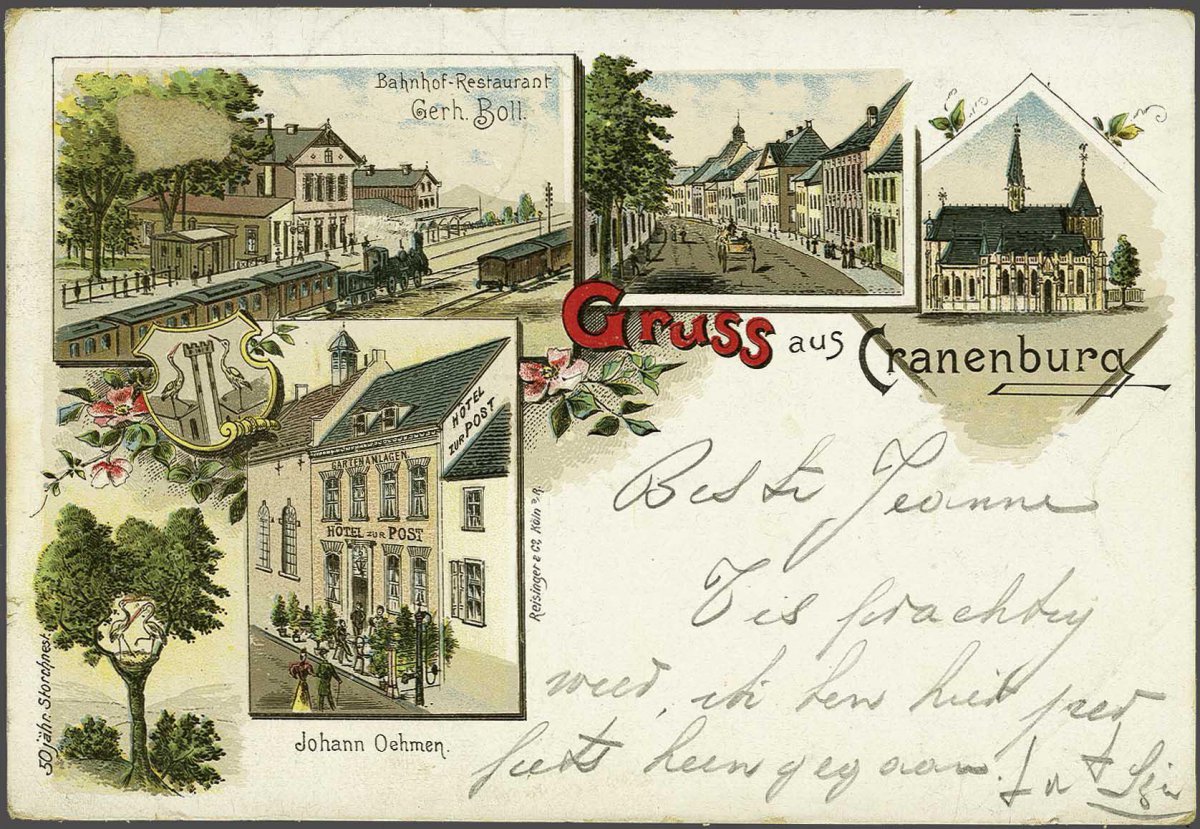 Bahnhof-Restaurant
Gerh. Boll.
Gruss aus Cranenburg
HOTEL
ZUR POST
GARTENANLAGEN
HÔTEL ZUR POST
Reisinger & Co, Köln a. R.
50 jähr. Storchnest.
Johann Oehmen.
Beste Jeanne
T is prachtig
weer, ik ben hier per
fiets heengegaan.